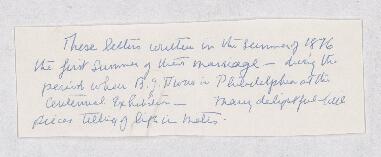 These letters written in the summer of 1876
the first summer of their marriage – during the
period when B.J. was in Philadelphia at the
Centennial Exhibition – many delightful little
pieces telling of life in